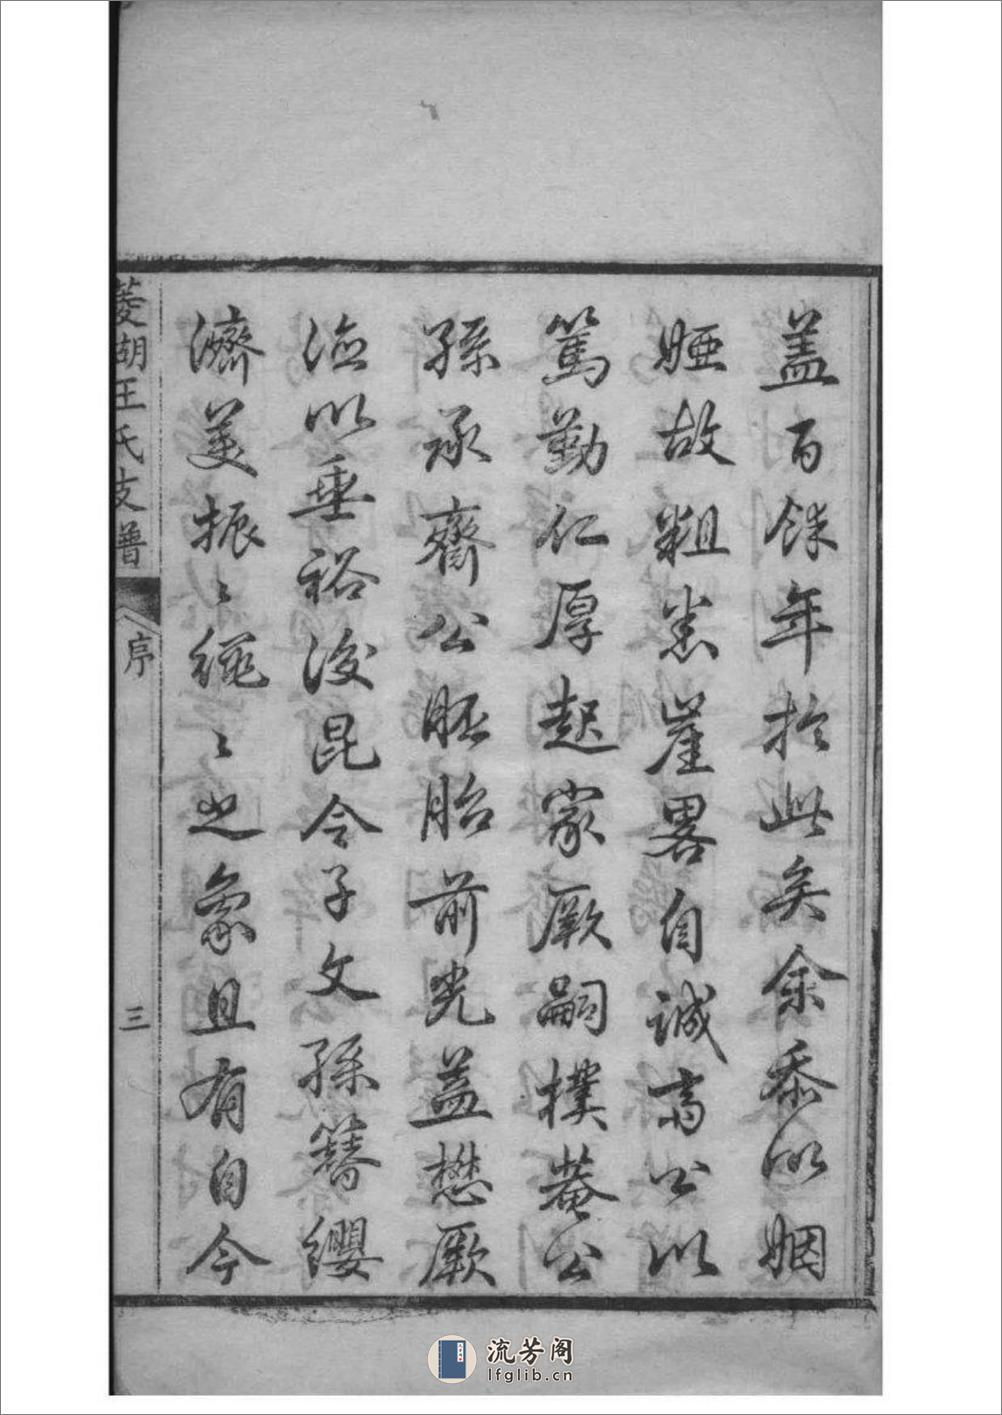 蓋百餘年於此矣余忝以姻
婭故粗悉崖畧自誠齋公以
篤勤仁厚起家厥嗣樸菴公
孫承齋公胚胎前光益懋厥
德以垂裕後昆令子文孫簪纓
濟美振〻繩〻之象且有自今
菱湖王氏支譜
序
三
流芳阁
lfglib.cn